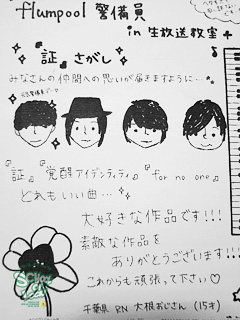 flumpool 警備員
in 生放送教室
『証』さがし
みなさんの仲間への思いが届きますように…
『証』『覚醒アイデンティティ』『for no one』
どれもいい曲…
大好きな作品です!!!
素敵な作品を
ありがとうございます!!!
これからも頑張って下さい♡
千葉県 RN 大根おじさん (15才)